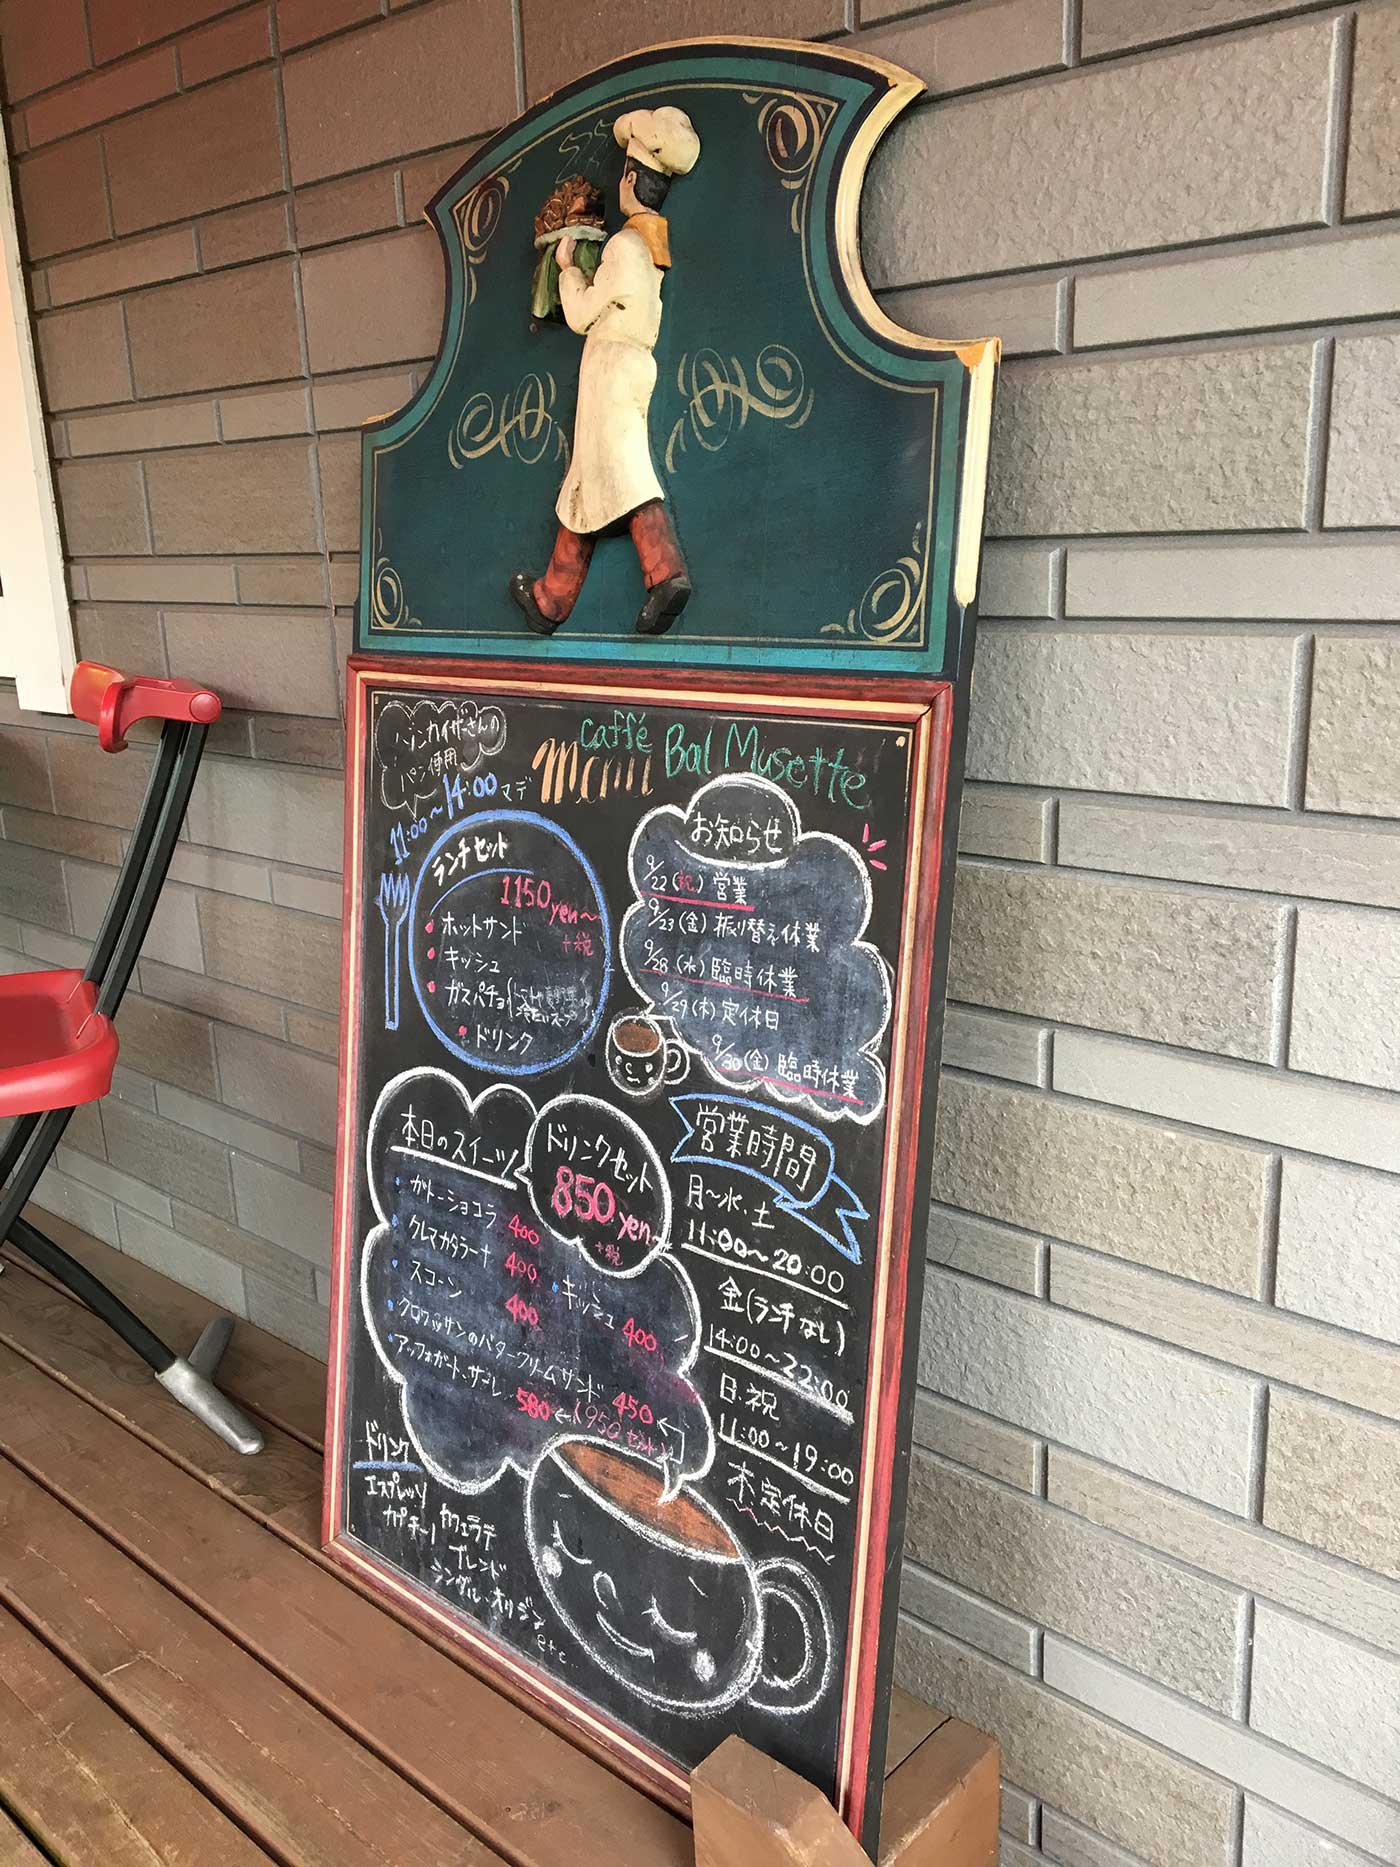 ハンカイザーさんの
パン使用
caffé
menu Bal Musette
11:00〜14:00マデ
ランチセット
1150yen〜
+税
ホットサンド
キッシュ
ガスパチョ
冷たいスープ
ドリンク
お知らせ
9/22(祝)営業
9/23(金)振り替え休業
9/28(水)臨時休業
9/29(木)定休日
9/30(金)臨時休業
本日のスイーツ
ガトーショコラ 400
クレマカタラーナ 400
スコーン 400
キッシュ 400
クロワッサンのバタークリームサンド 450
アッフォガート・サーレ 580←(950セット)
ドリンクセット
850yen〜
+税
営業時間
月〜水・土
11:00〜20:00
金(ランチなし)
14:00〜22:00
日・祝
11:00〜19:00
木定休日
ドリンク
エスプレッソ
カプチーノ
カフェラテ
ブレンド
シングルオリジン
etc..